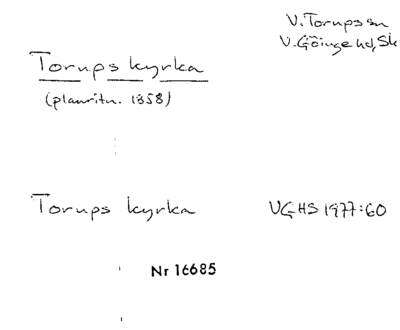 V. Torups sn
V. Göinge hd, Sk
Torups kyrka
(planritn. 1858)
Torups kyrka
VGHS 1977:60
Nr 16685